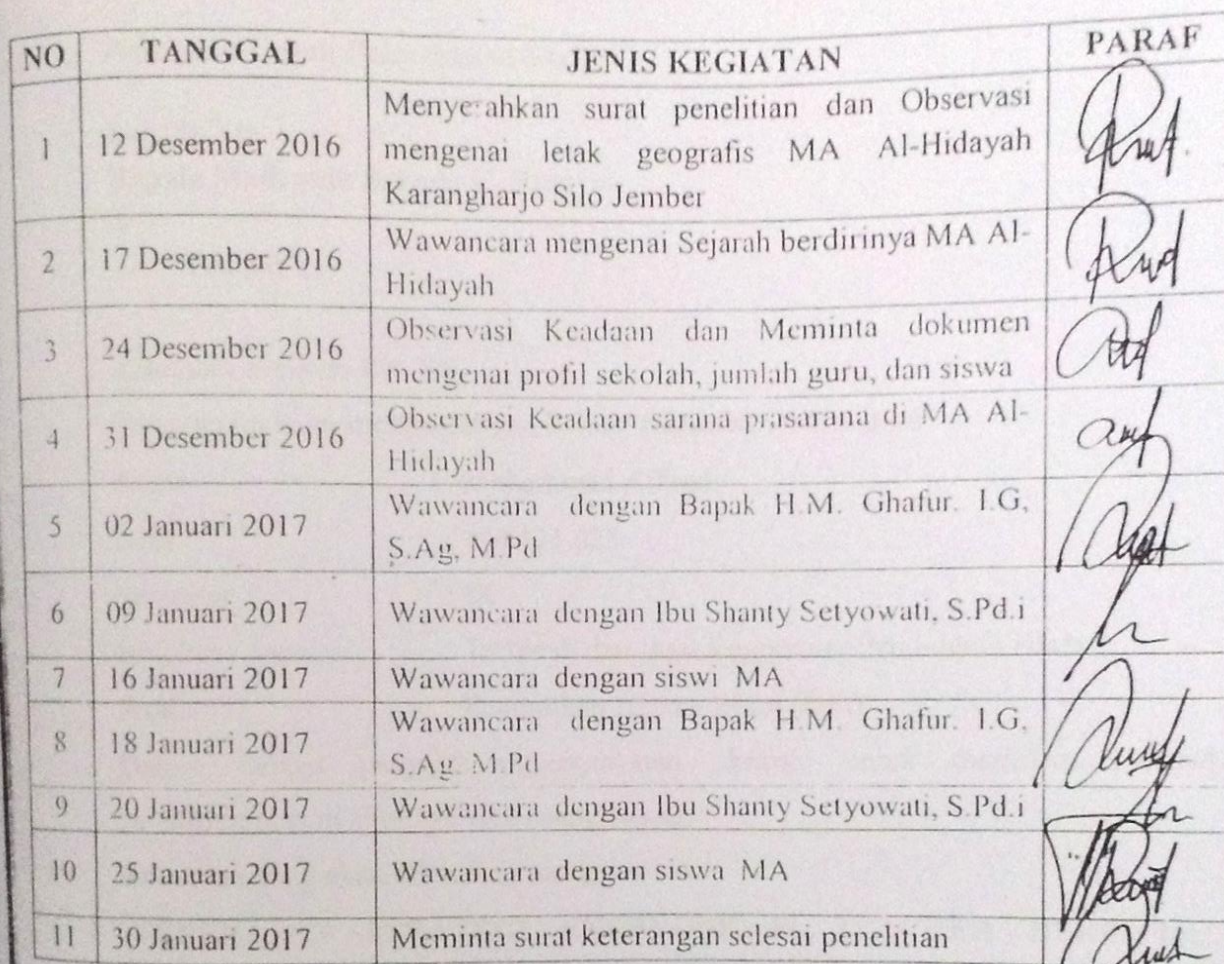 NO TANGGAL JENIS KEGIATAN PARAF
1 12 Desember 2016 Menyerahkan surat penelitian dan Observasi
mengenai letak geografis MA Al-Hidayah
Karangharjo Silo Jember
2 17 Desember 2016 Wawancara mengenai Sejarah berdirinya MA Al-
Hidayah
3 24 Desember 2016 Observasi Keadaan dan Meminta dokumen
mengenai profil sekolah, jumlah guru, dan siswa
4 31 Desember 2016 Observasi Keadaan sarana prasarana di MA Al-
Hidayah
5 02 Januari 2017 Wawancara dengan Bapak H.M. Ghafur. I.G,
S.Ag, M.Pd
6 09 Januari 2017 Wawancara dengan Ibu Shanty Setyowati, S.Pd.i
7 16 Januari 2017 Wawancara dengan siswi MA
8 18 Januari 2017 Wawancara dengan Bapak H.M. Ghafur. I.G,
S.Ag. M.Pd
9 20 Januari 2017 Wawancara dengan Ibu Shanty Setyowati, S.Pd.i
10 25 Januari 2017 Wawancara dengan siswa MA
11 30 Januari 2017 Meminta surat keterangan selesai penelitian